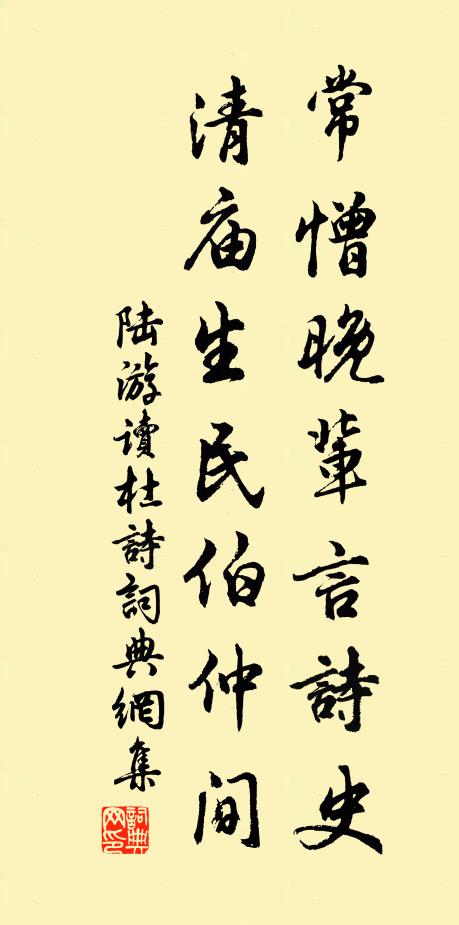 常憎晚輩言詩史
清庙生民伯仲间
陆游讀杜詩詞典網集
詞典网印